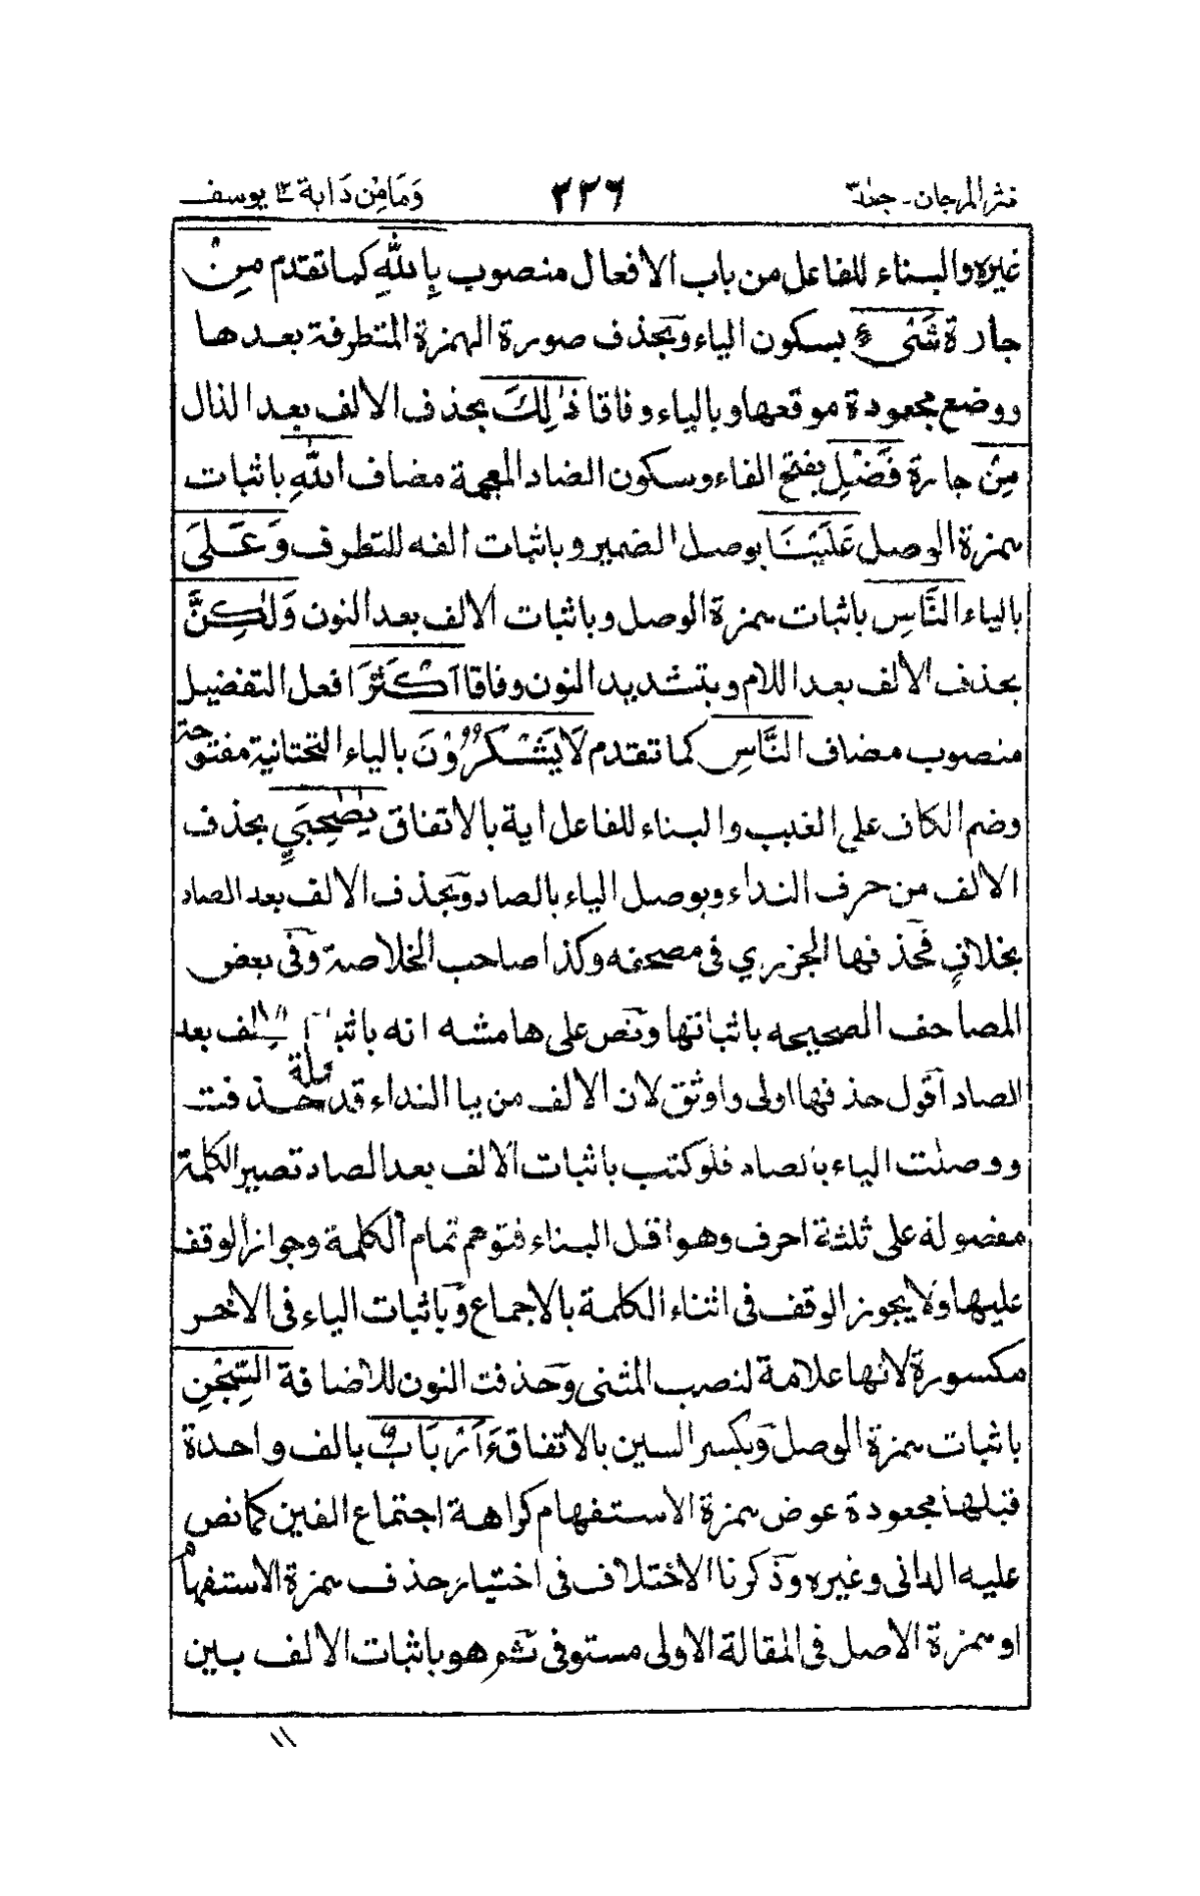 نثر المرجان ـ جلد٣ ٣٣٦ وَمَا مِنْ دَابة ١٢ يوسف
غيره والبناء للفاعل من باب الافعال منصوب بِاللهِ كما تقدم مِنْ
جارة شَيْءٍ بسكون الياء وبحذف صورة الهمزة المتطرفة بعدها
ووضع مجعودة موقعها وبالياء وفاقا ذٰلِكَ بحذف الالف بعد الذال
مِنْ جارة فَضْلِ بفتح الفاء وسكون الضاد المعجمة مضاف اللهِ باثبات
همزة الوصل عَلَيْنَا بوصل الضمير وباثبات الفه للتطرف وَعَلَى
بالياء النَّاسِ باثبات همزة الوصل وباثبات الالف بعد النون وَلٰكِنَّ
بحذف الالف بعد اللام وبتشديد النون وفاقا اَكْثَرَ افعل التفضيل
منصوب مضاف النَّاسِ كما تقدم لَا يَشْكُرُوْنَ بالياء التحتانية مفتوحة
وضم الكاف على الغيب والبناء للفاعل اية بالاتفاق يٰصٰحِبَيِ بحذف
الالف من حرف النداء وبوصل الياء بالصاد وبحذف الالف بعد الصاد
بخلافٍ فحذفها الجزري فى مصحفه وكذا صاحب الخلاصة وفى بعض
المصاحف الصحيحه باثباتها ونص على هامشه انه باثبات الالف بعد
الصاد اقول حذفها اولى واوثق لان الالف من يا النداء قد حذفت
ووصلت الياء بالصاد فلو كتب باثبات الالف بعد الصاد تصير الكلمة
مفصولة على ثلثة احرف وهو اقل البناء فتوهم تمام الكلمة وجواز الوقف
عليها ولا يجوز الوقف فى اثناء الكلمة بالاجماع وباثبات الياء فى الاخر
مكسورة لانها علامة لنصب المثنى وحذفت النون للاضافة السِّجْنِ
باثبات همزة الوصل وبكسر السين بالاتفاق ءَاَرْبَابٌ بالف واحدة
قبلها مجعودة عوض همزة الاستفهام كراهة اجتماع الفين كما نص
عليه الدانى وغيره وذكرنا الاختلاف فى اختيار حذف همزة الاستفهام
او همزة الاصل فى المقالة الاولى مستوفى ثم هو باثبات الالف بين